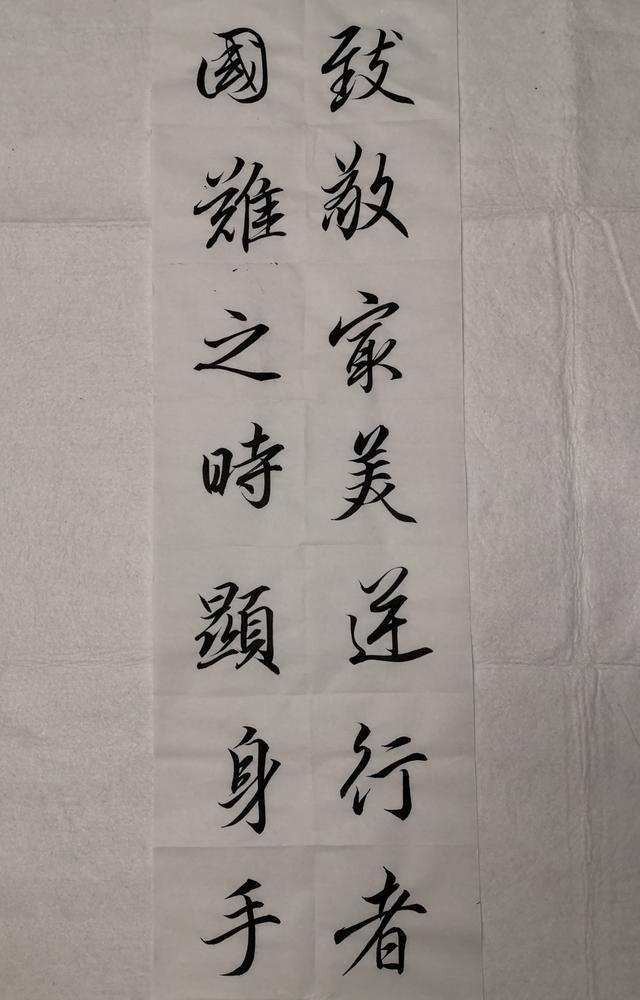 致敬最美逆行者
國難之時顯身手